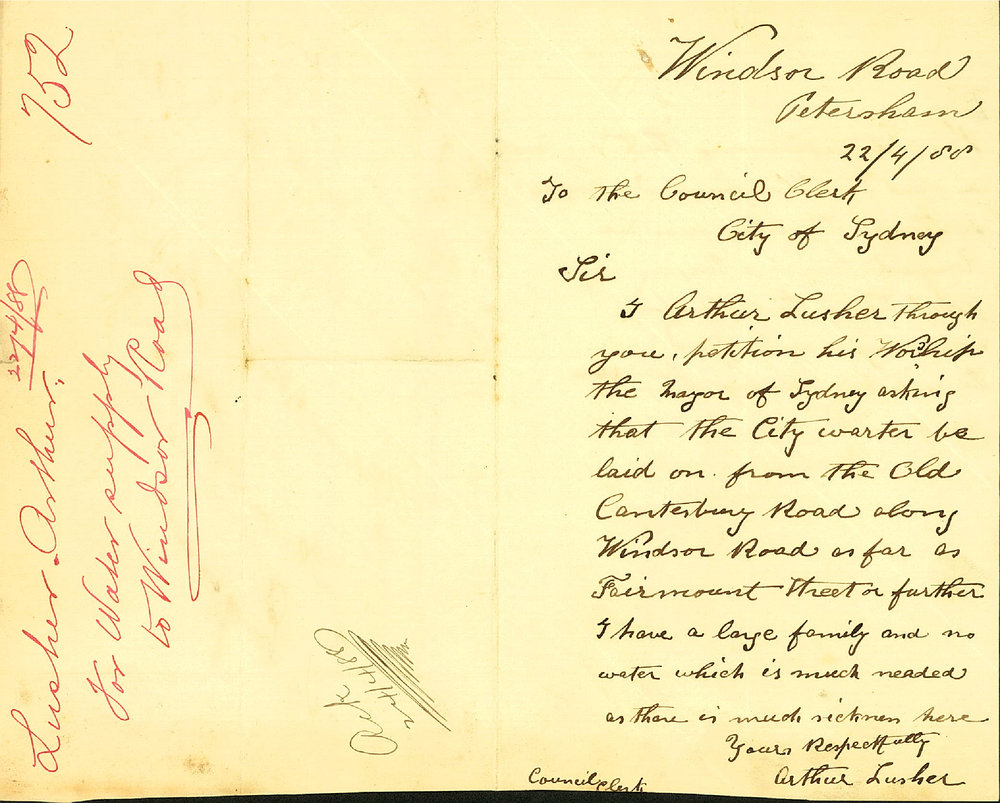 752
Lusher. Arthur,
22/4/88
For Water supply
to Windsor Road
Ack
Windsor Road
Petersham
22/4/88
To the Council Clerk
City of Sydney
Sir
I Arthur Lusher through
you, petition his Worship
the Mayor of Sydney asking
that the City warter be
laid on from the Old
Canterbury Road along
Windsor Road as far as
Fairmount Street or further
I have a large family and no
water which is much neaded
as there is much sickness here
Yours Respectfully
Arthur Lusher
Council Clerk